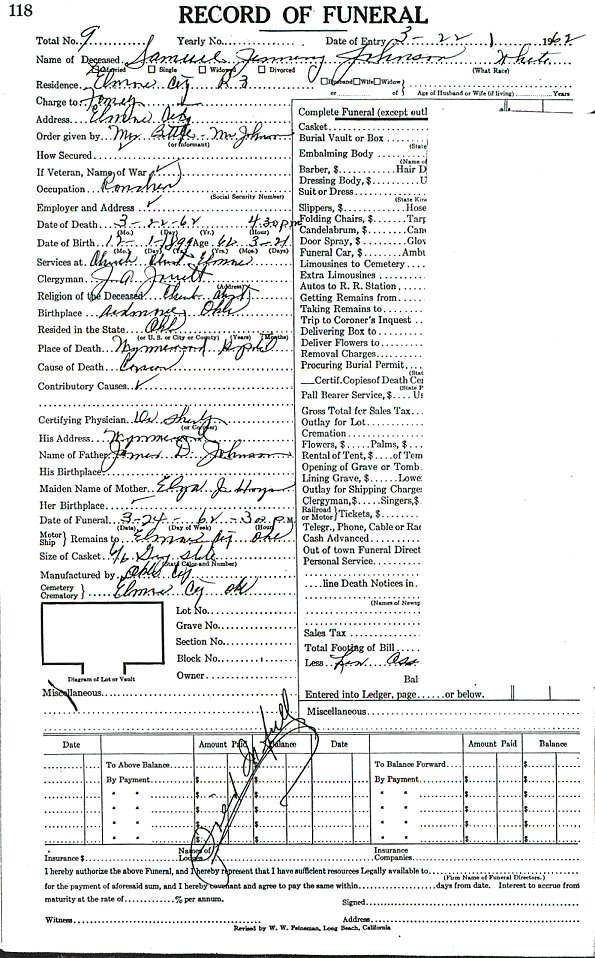 118
RECORD OF FUNERAL
Total No. 9 Yearly No. Date of Entry 3-22 1962
Name of Deceased Samuel Johnson White
Married Single Widowed Divorced (What Race)
Residence Elmore City R 3 Husband Wife Widow or of Age of Husband or Wife (if living) Years
Charge to Family
Address Elmore City
Order given by Mrs - Mr Johnson
(or Informant)
How Secured
If Veteran, Name of War
Occupation Rancher
(Social Security Number)
Employer and Address
Date of Death 3-22-62 4:30 pm
(Mo.) (Day) (Yr.) (Hour)
Date of Birth 12-1-1899 Age 62-3-21
(Mo.) (Day) (Yr.) (Yrs.) (Mos.) (Days)
Services at Church Christ Elmore
Clergyman J. A. Jarrett
(Address)
Religion of the Deceased Church Christ
Birthplace Ardmore, Okla
Resided in the State Okl
(or U. S. or City or County) (Years) (Months)
Place of Death Wynnewood Hospital
Cause of Death Cancer
Contributory Causes
Certifying Physician Dr
(or Coroner)
His Address Wynnewood
Name of Father James D. Johnson
His Birthplace
Maiden Name of Mother J.
Her Birthplace
Date of Funeral 3-24-62-3:00 P.M.
(Date) (Day of Week) (Hour)
Motor Ship Remains to Elmore City Okl
Size of Casket 6/6 Gray
(State Color and Number)
Manufactured by Okla City
Cemetery Crematory Elmore City Okl
Lot No.
Grave No.
Section No.
Block No.
Owner
Diagram of Lot or Vault
Miscellaneous
Complete Funeral (except outl
Casket
Burial Vault or Box
(State
Embalming Body
(Name of
Barber, $ Hair D
Dressing Body, $ U
Suit or Dress
(State Kin
Slippers, $ Hose
Folding Chairs, $ Tarp
Candelabrum, $ Can
Door Spray, $ Glov
Funeral Car, $ Ambu
Limousines to Cemetery
Extra Limousines
Autos to R. R. Station
Getting Remains from
Taking Remains to
Trip to Coroner's Inquest
Delivering Box to
Deliver Flowers to
Removal Charges
Procuring Burial Permit
(Stat
__Certif. Copies of Death Cer
(State P
Pall Bearer Service, $ Us
Gross Total for Sales Tax
Outlay for Lot
Cremation
Flowers, $ Palms, $
Rental of Tent, $ of Tem
Opening of Grave or Tomb
Lining Grave, $ Lowe
Outlay for Shipping Charge
Clergyman, $ Singers, $
Railroad or Motor Tickets, $
Telegr., Phone, Cable or Rad
Cash Advanced
Out of town Funeral Direct
Personal Service
line Death Notices in
(Names of Newsp
Sales Tax
Total Footing of Bill
Less
Bal
Entered into Ledger, page or below.
Miscellaneous
Date Amount Paid Balance Date Amount Paid Balance
To Above Balance $ To Balance Forward $
By Payment $ $ By Payment $ $
" " $ $ " " $ $
" " $ $ " " $ $
" " $ $ " " $ $
" " $ $ " " $ $
Paid In full
Insurance $ Names of Lodges Insurance Companies
I hereby authorize the above Funeral, and I hereby represent that I have sufficient resources Legally available to
(Firm Name of Funeral Directors.)
for the payment of aforesaid sum, and I hereby covenant and agree to pay the same within days from date. Interest to accrue from
maturity at the rate of % per annum. Signed
Witness Address
Revised by W. W. Feineman, Long Beach, California